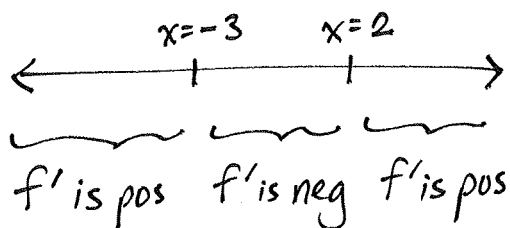 x=-3 x=2
f' is pos f' is neg f' is pos